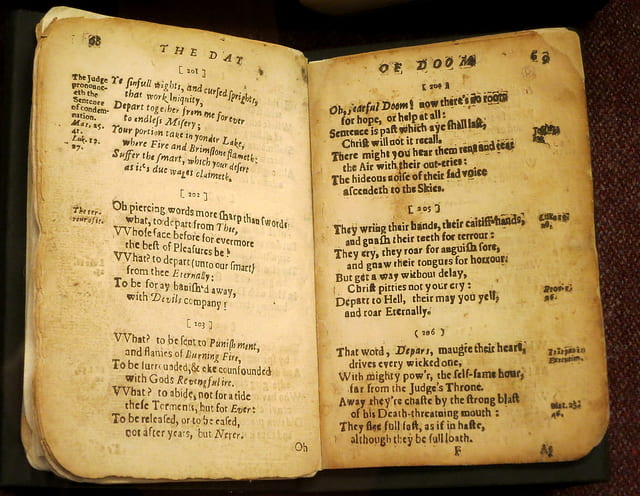 68
THE DAY
[ 201 ]
The Judge
pronounc-
eth the
Sentence
of condem-
nation.
Mat. 25.
41.
Ye sinfull wights, and cursed sprights,
that work Iniquity,
Depart together from me for ever
to endless Misery;
Your portion take in yonder Lake,
where Fire and Brimstone flameth:
Suffer the smart, which your desert
as it's due wages claimeth.
[ 202 ]
The ter-
rour of it.
Oh piercing words more sharp than swords
what, to depart from Thee,
VVhose face before for evermore
the best of Pleasures be!
VVhat? to depart (unto our smart)
from thee Eternally:
To be for ay banish'd away,
with Devils company!
[ 203 ]
VVhat? to be sent to Punishment,
and flames of Burning Fire,
To be surrounded, & eke confounded
with Gods Revengful ire.
VVhat? to abide, not for a tide
these Torments, but for Ever:
To be released, or to be eased,
not after years, but Never.
Oh
OF DOOM
69
[ 204 ]
Oh, fearful Doom! now there's no room
for hope, or help at all:
Sentence is past which aye shall last,
Christ will not it recall.
There might you hear them rent and tear
the Air with their out-cries:
The hideous noise of their sad voice
ascendeth to the Skies.
[ 205 ]
They wring their hands, their caitiff-hands,
and gnash their teeth for terrour:
They cry, they roar for anguish sore,
and gnaw their tongues for horrour.
But get a way without delay,
Christ pitties not your cry:
Depart to Hell, their may you yell,
and roar Eternally.
( 206 )
That word, Depart, maugre their heart,
drives every wicked one,
With mighty pow'r, the self-same hour,
far from the Judge's Throne.
Mat. 25.
46.
Away they're chaste by the strong blast
of his Death-threatning mouth:
They flee full fast, as if in haste,
although they be full loath.
F